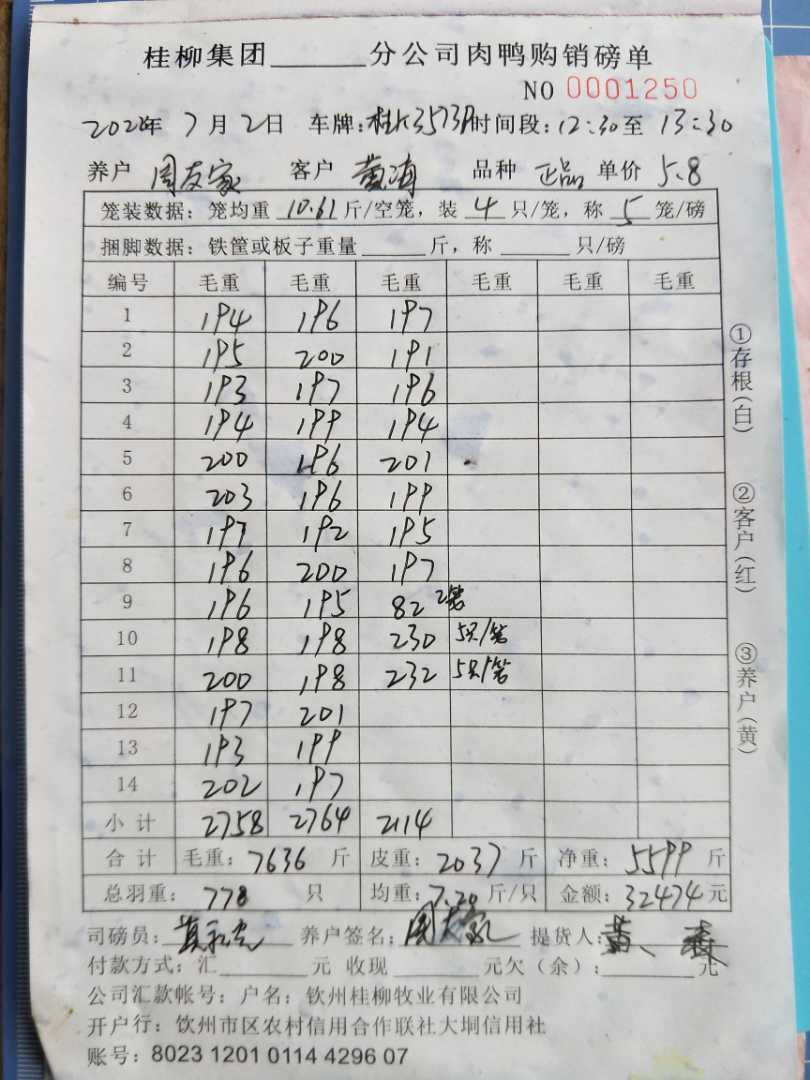 桂柳集团______分公司肉鸭购销磅单
NO 0001250
2020年 7月2日 车牌:桂K3573P 时间段:12:30至 13:30
养户 周友家 客户 黄海 品种 正品 单价 5.8
笼装数据:笼均重 10.61 斤/空笼,装 4 只/笼,称 5 笼/磅
捆脚数据:铁筐或板子重量______斤,称______只/磅
编号 毛重 毛重 毛重 毛重 毛重 毛重
1 194 196 197
2 195 200 191
3 193 197 196
4 194 199 194
5 200 196 201
6 203 196 199
7 197 192 195
8 196 200 197
9 196 195 82 2笼
10 198 198 230 5只/笼
11 200 198 232 5只/笼
12 197 201
13 193 199
14 202 197
小计 2758 2764 2114
合计 毛重:7636 斤 皮重:2037 斤 净重:5599 斤
总羽重:778 只 均重:7.20 斤/只 金额:32474 元
司磅员: 养户签名:周友家 提货人:
付款方式:汇______元 收现______元欠(余):______元
公司汇款帐号:户名:钦州桂柳牧业有限公司
开户行:饮州市区农村信用合作联社大垌信用社
账号:8023 1201 0114 4296 07
①存根(白)
②客户(红)
③养户(黄)